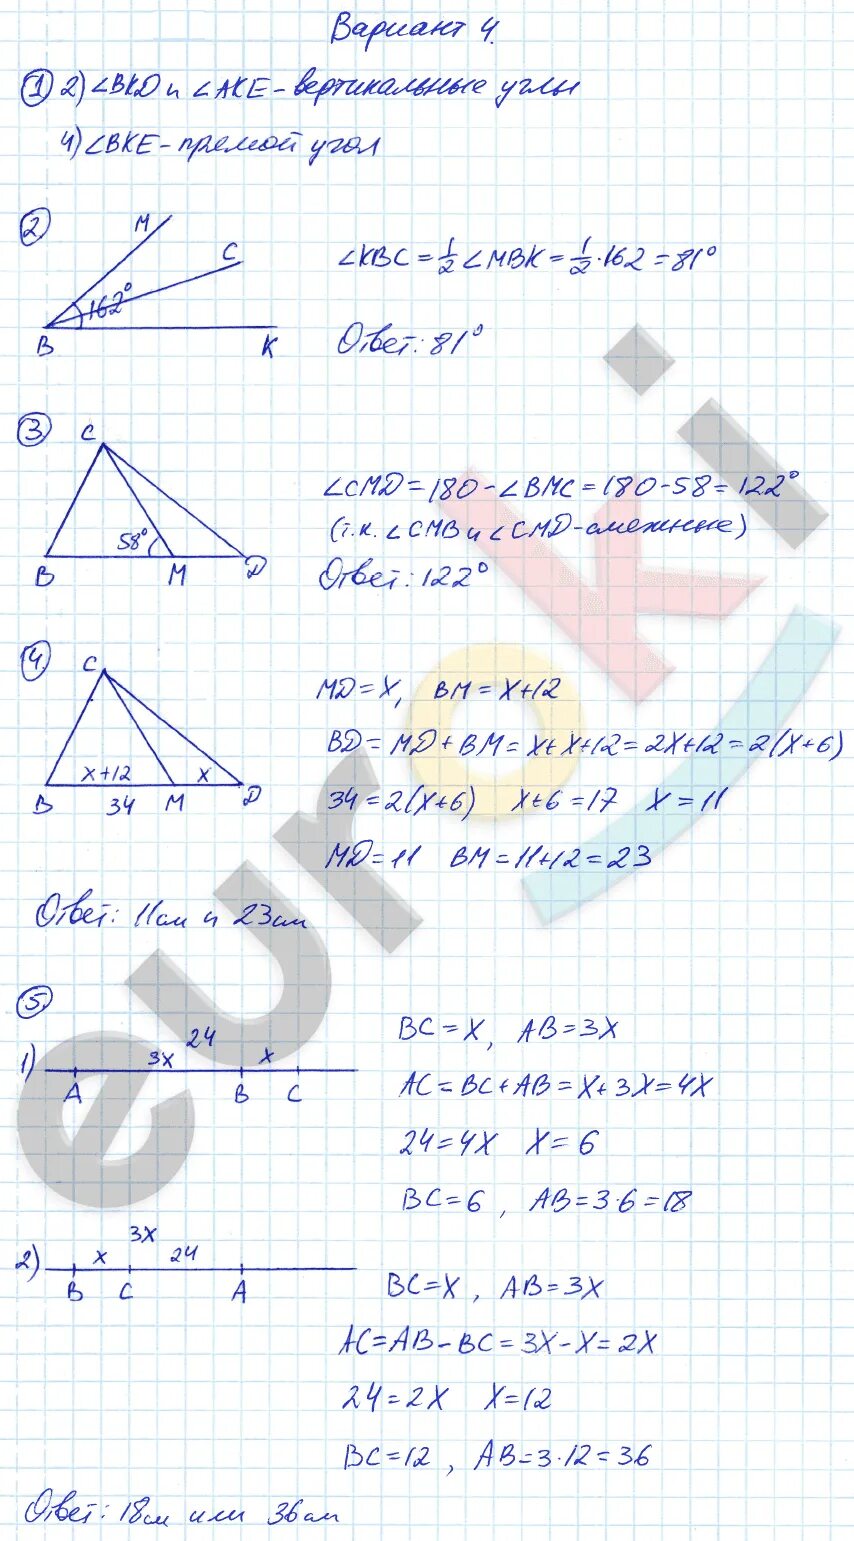 Вариант 4.
1 2) ∠BKD и ∠AKE - вертикальные углы
4) ∠BKE - прямой угол
2
M
C
162°
B
K
∠KBC = 1/2 ∠MBK = 1/2 · 162 = 81°
Ответ: 81°
3
C
58°
B
M
D
∠CMD = 180 - ∠BMC = 180 - 58 = 122°
(т.к. ∠CMB и ∠CMD - смежные)
Ответ: 122°
4
C
x+12
x
B
34
M
D
MD = x, BM = x+12
BD = MD + BM = x + x + 12 = 2x + 12 = 2(x+6)
34 = 2(x+6) x+6 = 17 x = 11
MD = 11 BM = 11+12 = 23
Ответ: 11см и 23см
5
1)
24
3x
x
A
B
C
BC = x, AB = 3x
AC = BC + AB = x + 3x = 4x
24 = 4x x = 6
BC = 6, AB = 3·6 = 18
2)
3x
x
24
B
C
A
BC = x, AB = 3x
AC = AB - BC = 3x - x = 2x
24 = 2x x = 12
BC = 12, AB = 3·12 = 36
Ответ: 18см или 36см
euroki